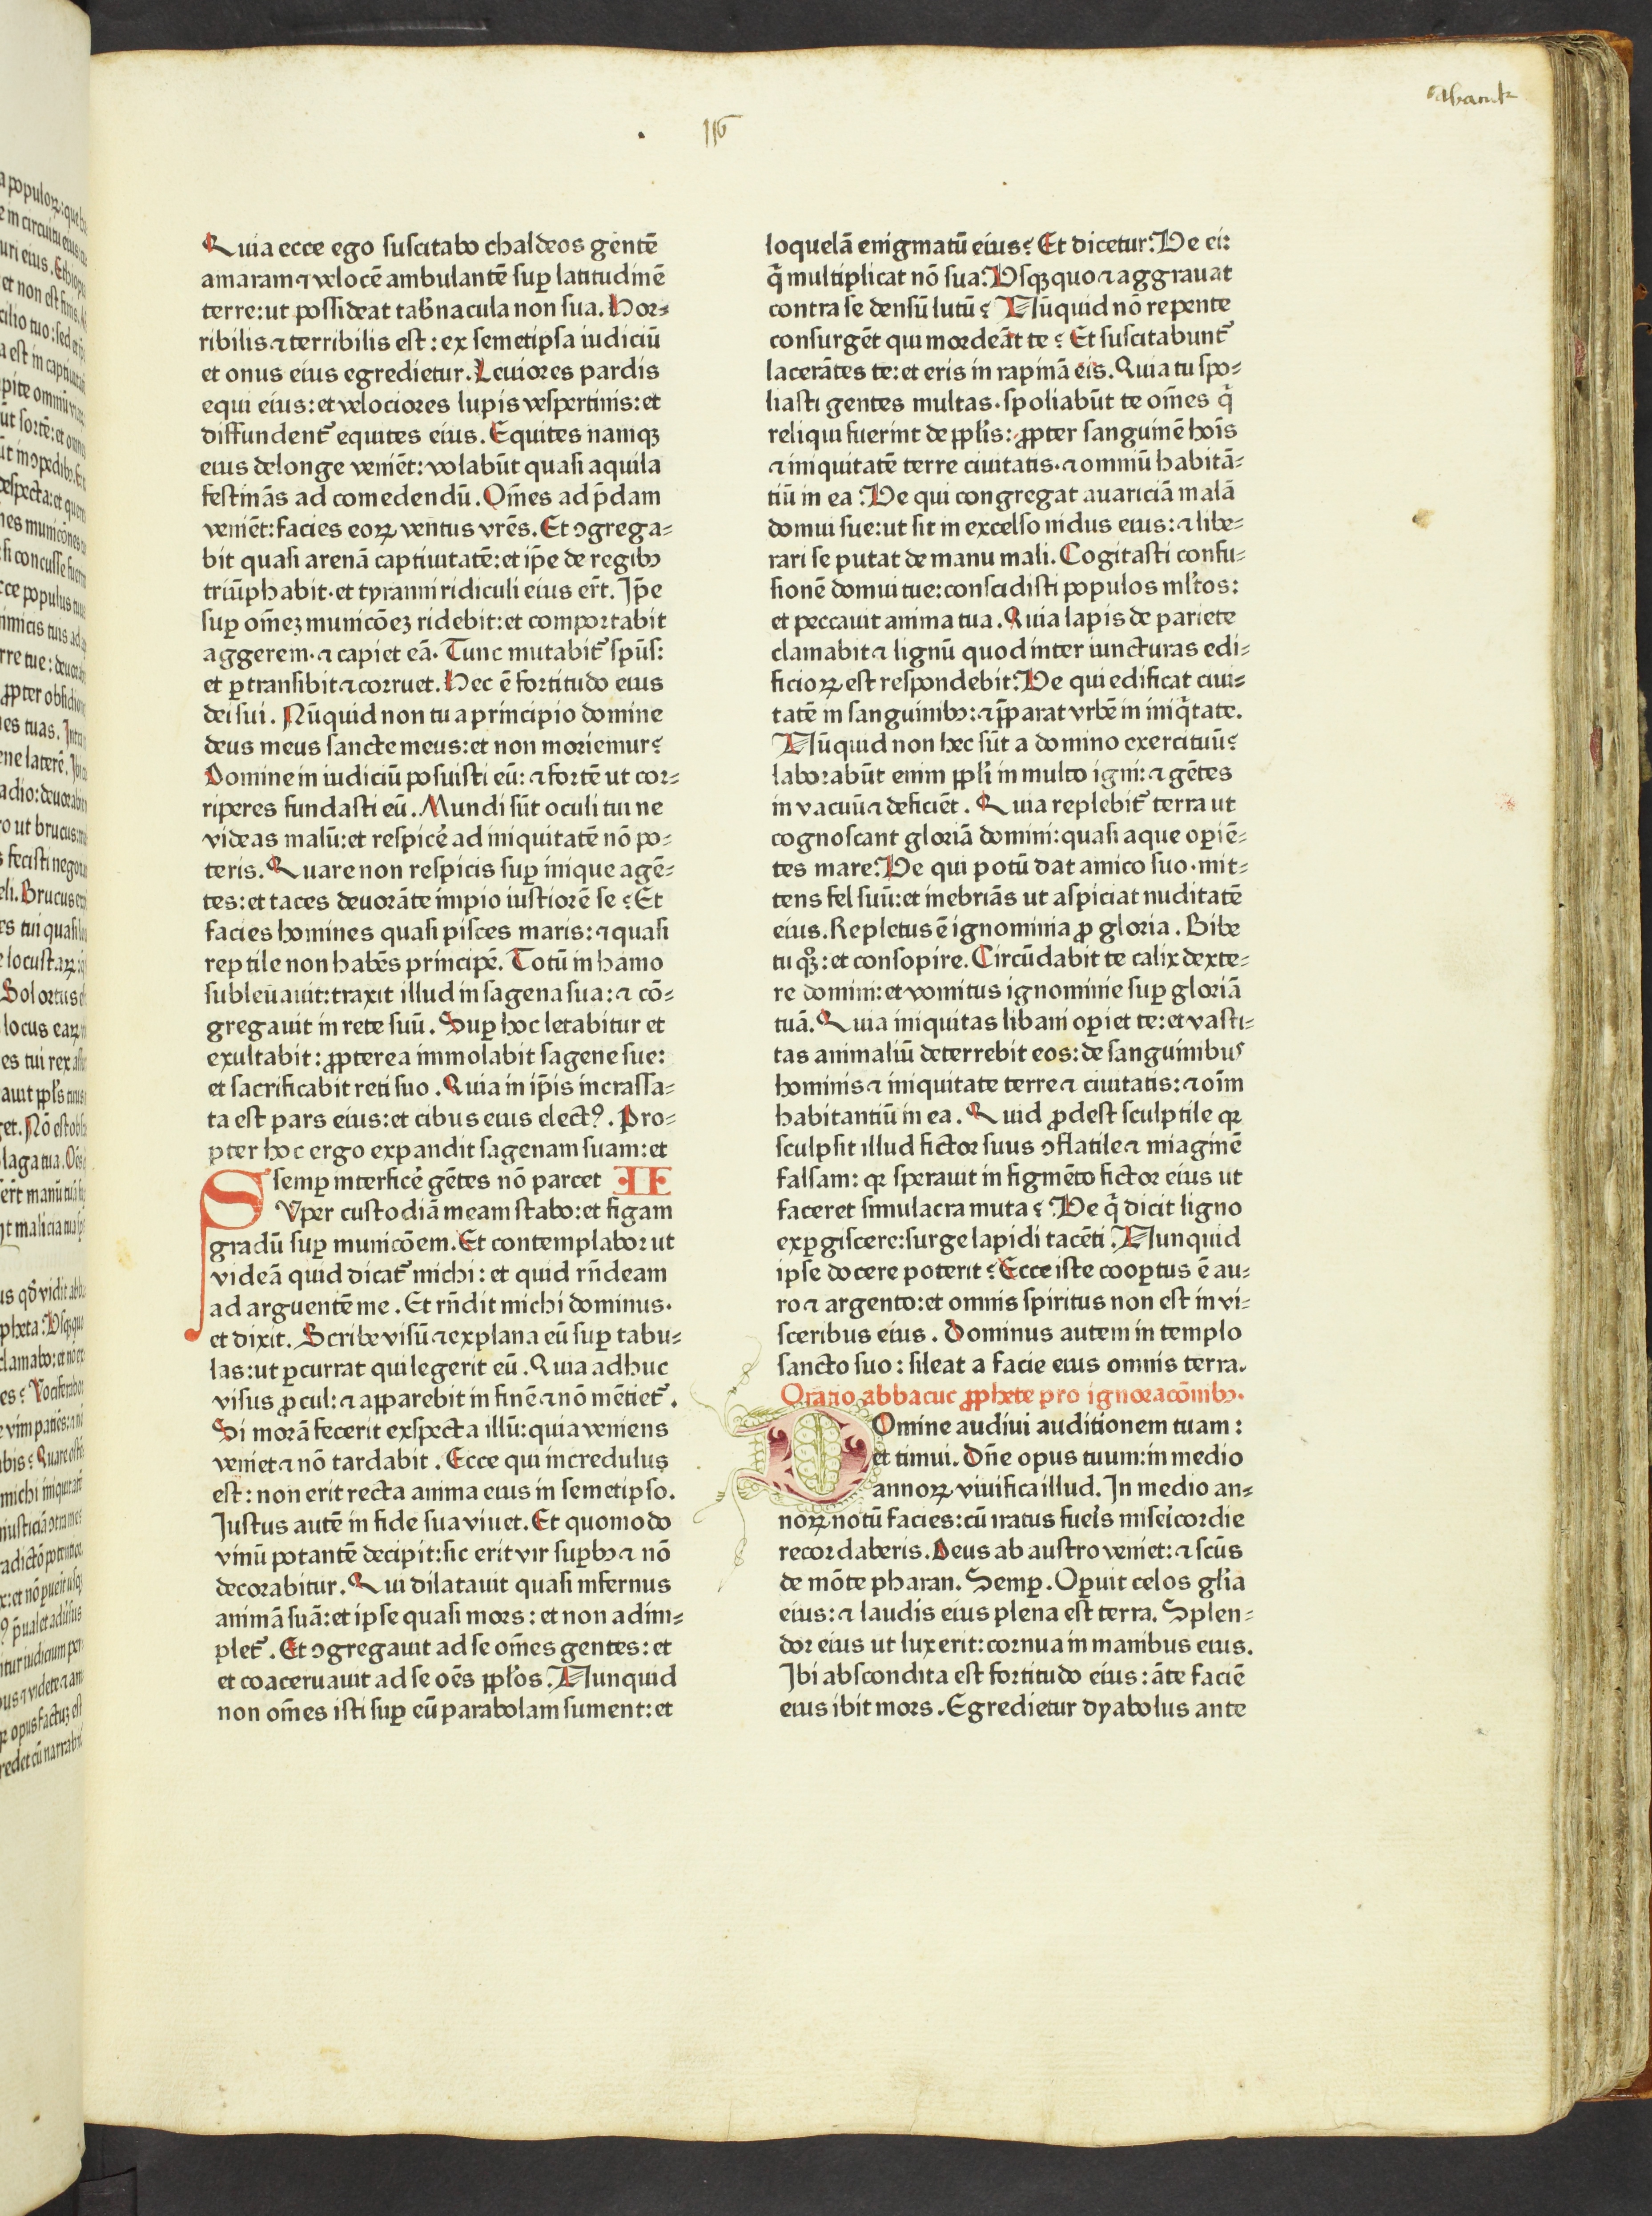 abacuk
116
Quia ecce ego suscitabo chaldeos gentē
amaram ⁊ velocē ambulantē suꝑ latitudinē
terre: ut possideat tab̄nacula non sua. Hor⸗
ribilis ⁊ terribilis est : ex semetipsa iudiciū
et onus eius egredietur. Leuiores pardis
equi eius: et velociores lupis vespertinis: et
diffundent᷑ equites eius. Equites namqꝫ
eius delonge veniēt: volabūt quasi aquila
festinās ad comedendū. Om̄es ad p̄dam
veniēt: facies eoꝝ ventus vrēs. Et ꝯgrega⸗
bit quasi arenā captiuitatē: et ip̄e de regibꝫ
triūphabit. et tyranni ridiculi eius er̄t. Ip̄e
suꝑ om̄eꝫ municōeꝫ ridebit: et comportabit
aggerem. ⁊ capiet eā. Tunc mutabit᷑ sp̄us:
et ꝑtransibit ⁊ corruet. Hec ē fortitudo eius
dei sui. Nūquid non tu a principio domine
deus meus sancte meus: et non moriemur?
Domine in iudiciū posuisti eū: ⁊ fortē ut cor⸗
riperes fundasti eū. Mundi sūt oculi tui ne
videas malū: et respice᷑ ad iniquitatē nō po⸗
teris. Quare non respicis suꝑ inique agē⸗
tes: et taces deuorāte impio iustiorē se? Et
facies homines quasi pisces maris: ⁊ quasi
reptile non habēs principē. Totū in hamo
subleuauit: traxit illud in sagena sua: ⁊ cō⸗
gregauit in rete suū. Suꝑ hoc letabitur et
exultabit: ꝓpterea immolabit sagene sue:
et sacrificabit reti suo. Quia in ip̄is incrassa⸗
ta est pars eius: et cibus eius electꝰ. Pro⸗
pter hoc ergo expandit sagenam suam: et
semꝑ interfice᷑ gētes nō parcet II
SVper custodiā meam stabo: et figam
gradū suꝑ municōem. Et contemplabor ut
videā quid dicat᷑ michi: et quid rn̄deam
ad arguentē me. Et rn̄dit michi dominus.
et dixit. Scribe visū ⁊ explana eū suꝑ tabu⸗
las: ut ꝑcurrat qui legerit eū. Quia adhuc
visus ꝓcul: ⁊ apparebit in finē ⁊ nō mētiet᷑.
Si morā fecerit exspecta illū: quia veniens
veniet ⁊ nō tardabit. Ecce qui incredulus
est: non erit recta anima eius in semetipso.
Iustus autē in fide sua viuet. Et quomodo
vinū potantē decipit: sic erit vir suꝑbꝫ ⁊ nō
decorabitur. Qui dilatauit quasi infernus
animā suā: et ipse quasi mors: et non adim⸗
plet᷑. Et ꝯgregauit ad se om̄es gentes: et
et coaceruauit ad se oēs pp̄los. Nunquid
non om̄es isti suꝑ eū parabolam sument: et
loquelā enigmatū eius? Et dicetur: Ve ei:
q̄ multiplicat nō sua: Vsqꝫquo ⁊ aggrauat
contra se densū lutū? Nūquid nō repente
consurgēt qui mordeāt te? Et suscitabunt᷑
lacerātes te: et eris in rapinā eis. Quia tu spo⸗
liasti gentes multas. spoliabūt te om̄es q̄
reliqui fuerint de pp̄lis: ꝓpter sanguinē hoīs
⁊ iniquitatē terre ciuitatis. ⁊ omniū habitā⸗
tiū in ea: Ve qui congregat auariciā malā
domui sue: ut sit in excelso nidus eius: ⁊ libe⸗
rari se putat de manu mali. Cogitasti confu⸗
sionē domui tue: conscidisti populos ml̄tos:
et peccauit anima tua. Quia lapis de pariete
clamabit ⁊ lignū quod inter iuncturas edi⸗
ficioꝝ est respondebit: Ve qui edificat ciui⸗
tatē in sanguinibꝫ: ⁊ p̄parat vrbē in iniq̄tate.
Nūquid non hec sūt a domino exercituū?
laborabūt enim pp̄li in multo igni: ⁊ gētes
in vacuū ⁊ deficiēt. Quia replebit᷑ terra ut
cognoscant gloriā domini: quasi aque oꝑiē⸗
tes mare: Ve qui potū dat amico suo. mit⸗
tens fel suū: et inebriās ut aspiciat nuditatē
eius. Repletus ē ignominia ꝓ gloria. Bibe
tu qꝫ: et consopire. Circūdabit te calix dexte⸗
re domini: et vomitus ignominie suꝑ gloriā
tuā. Quia iniquitas libani oꝑiet te: et vasti⸗
tas animaliū deterrebit eos: de sanguinibus
hominis ⁊ iniquitate terre ⁊ ciuitatis: ⁊ oīm
habitantiū in ea. Quid ꝓdest sculptile qꝛ
sculpsit illud fictor suus ꝯflatile ⁊ imaginē
falsam: qꝛ sperauit in figmēto fictor eius ut
faceret simulacra muta? Ve q̄ dicit ligno
exꝑgiscere: surge lapidi tacēti. Nunquid
ipse docere poterit? Ecce iste cooꝑtus ē au⸗
ro ⁊ argento: et omnis spiritus non est in vi⸗
sceribus eius. Dominus autem in templo
sancto suo: sileat a facie eius omnis terra.
Oratio abbacuc ꝓphete pro ignoracōnibꝫ.
DOmine audiui auditionem tuam:
et timui. Dn̄e opus tuum: in medio
annoꝝ viuifica illud. In medio an⸗
noꝝ notū facies: cū iratus fue᷑is mise᷑icordie
recordaberis. Deus ab austro veniet: ⁊ sc̄us
de mōte pharan. Semꝑ. Oꝑuit celos gl̄ia
eius: ⁊ laudis eius plena est terra. Splen⸗
dor eius ut lux erit: cornua in manibus eius.
Ibi abscondita est fortitudo eius: āte faciē
eius ibit mors. Egredietur dyabolus ante